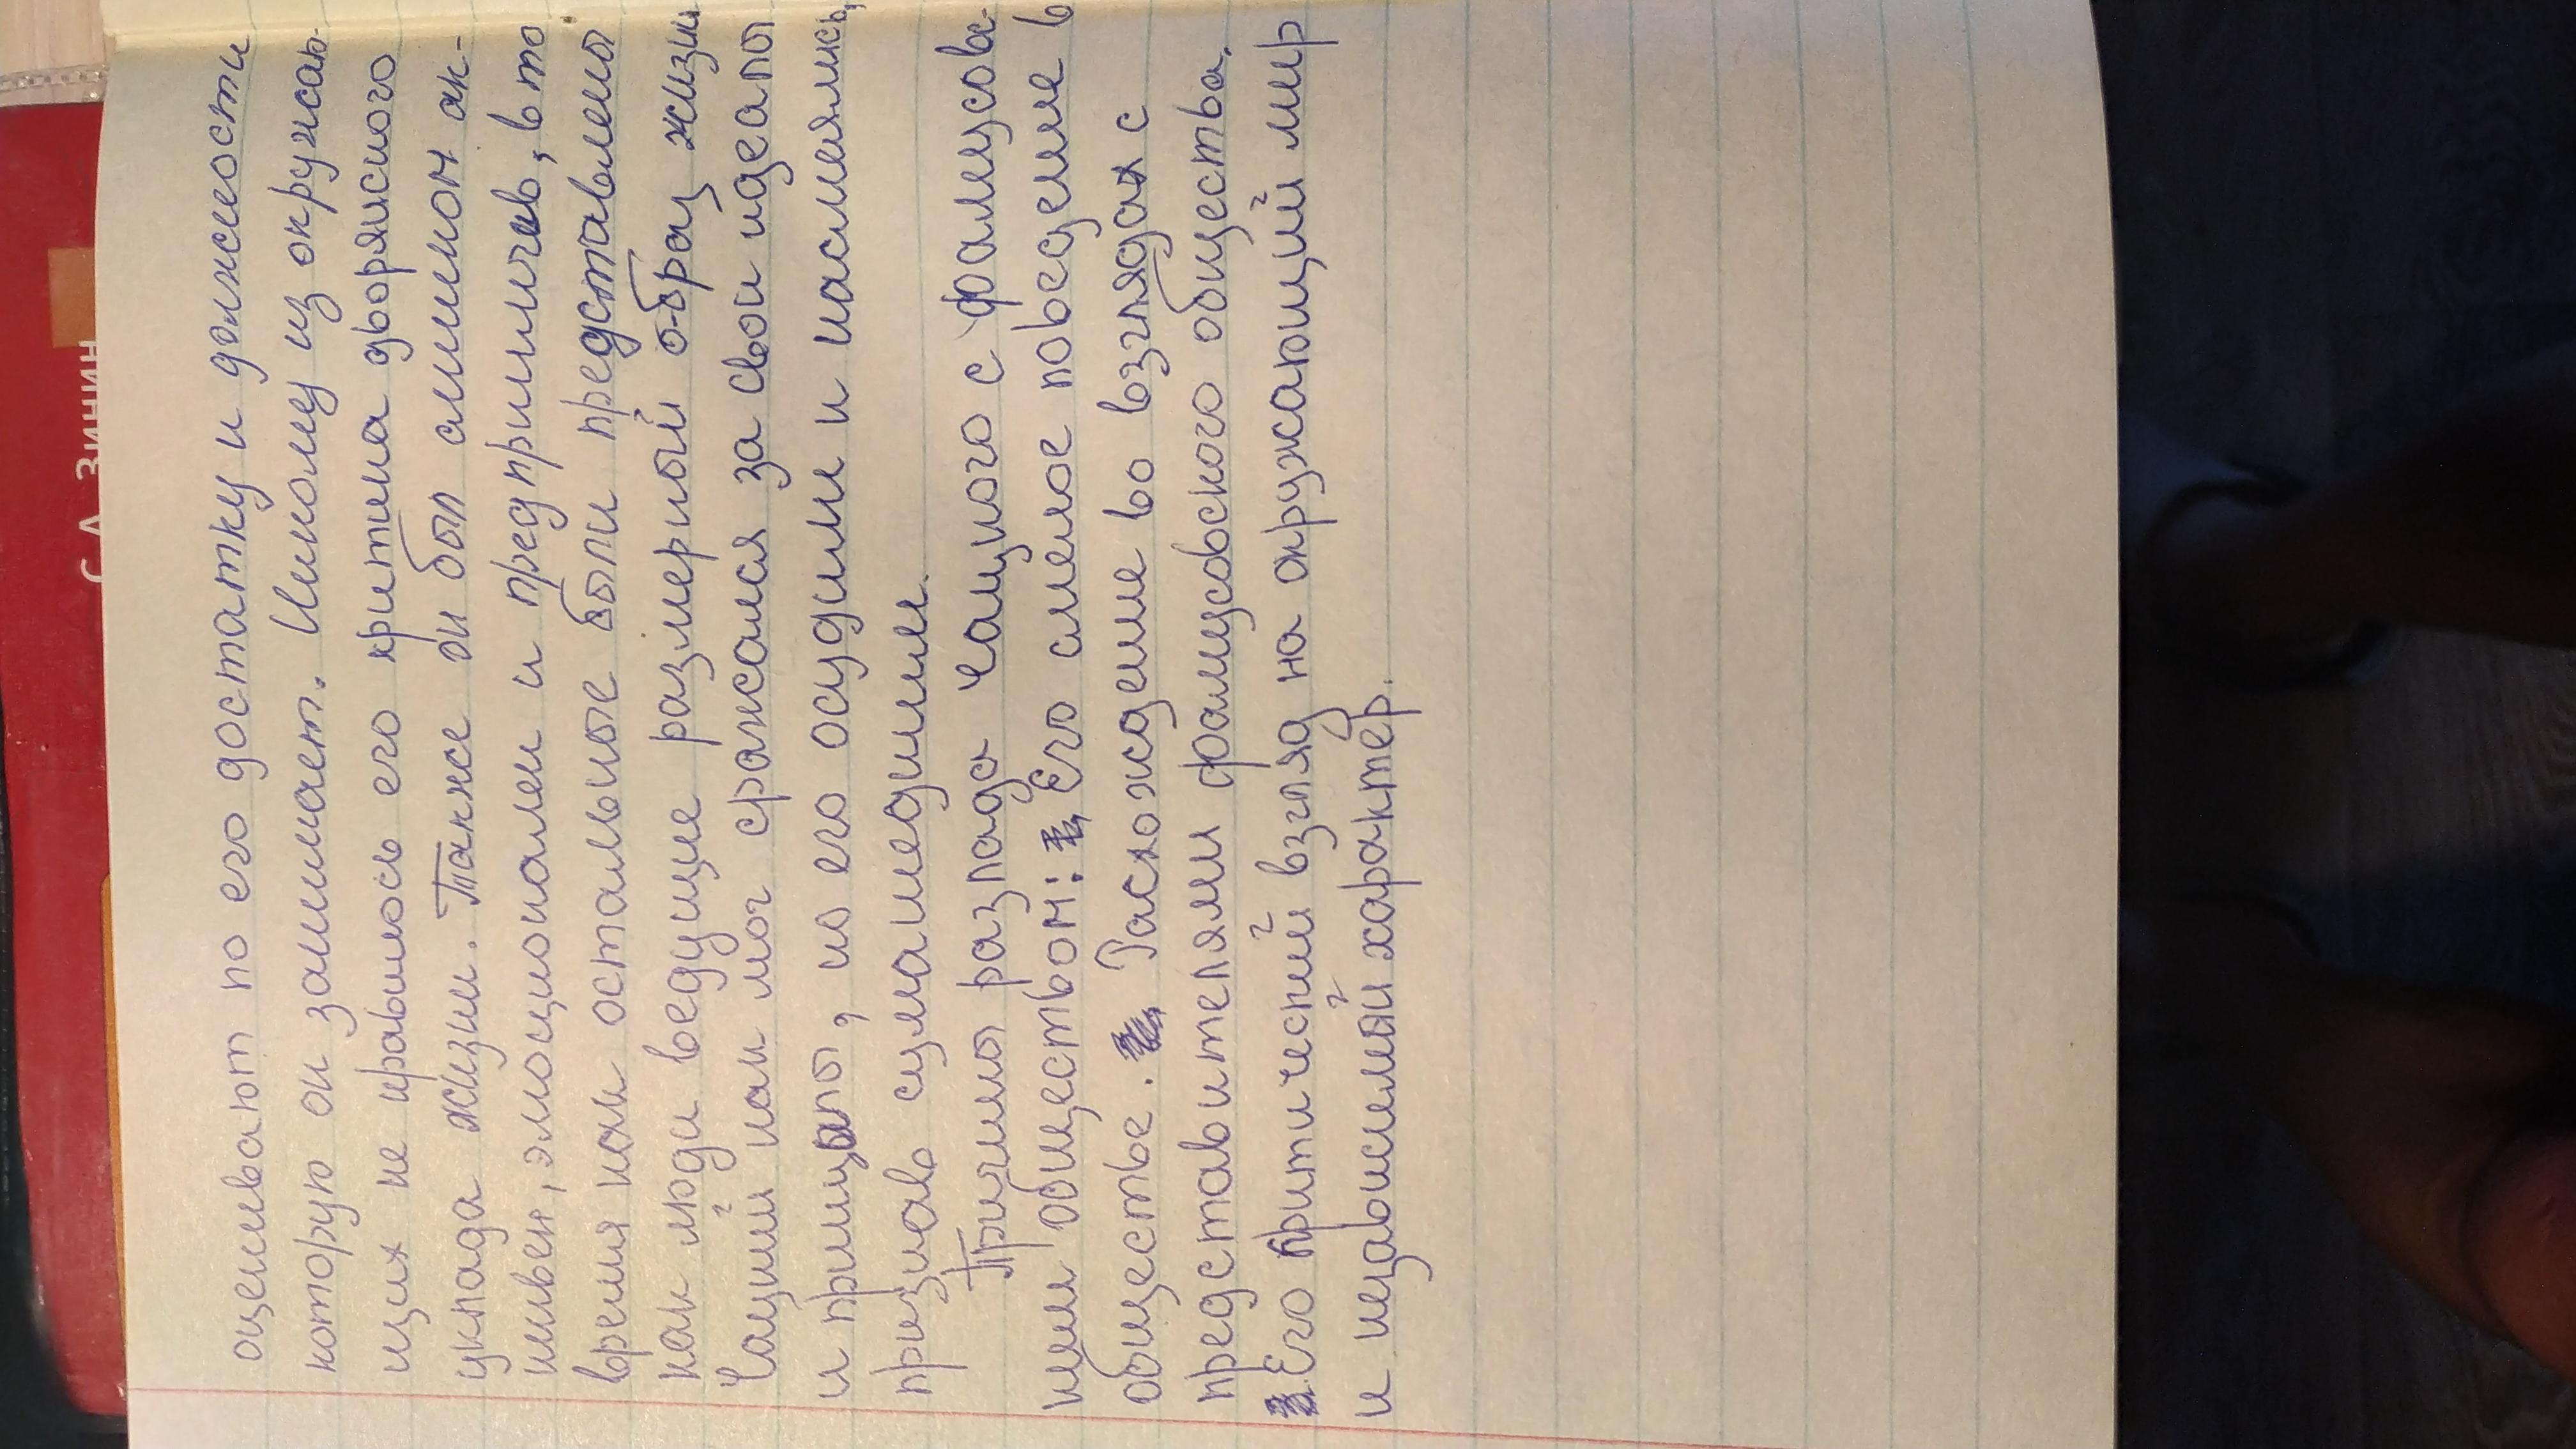 С.А. Зинин
оценивают по его достатку и должности
которую он занимает. Никому из окружаю-
щих не нравилось его критика дворянского
уклада жизни. Также он был слишком ак-
тивен, эмоционален и предприимчев, в то
время как остальное были представлены
как люди ведущие размерный образ жизни
Чацкий как мог сражался за свои идеалы
и принципы, но его осудили и насмехались,
признав сумашедшим.
Причина разлада Чацкого с фамусовс-
ким обществом: Его смелое поведение в
обществе. Расхождение во взглядах с
представителями фамусовского общества.
Его критический взгляд на окружающий мир
и независимый характер.